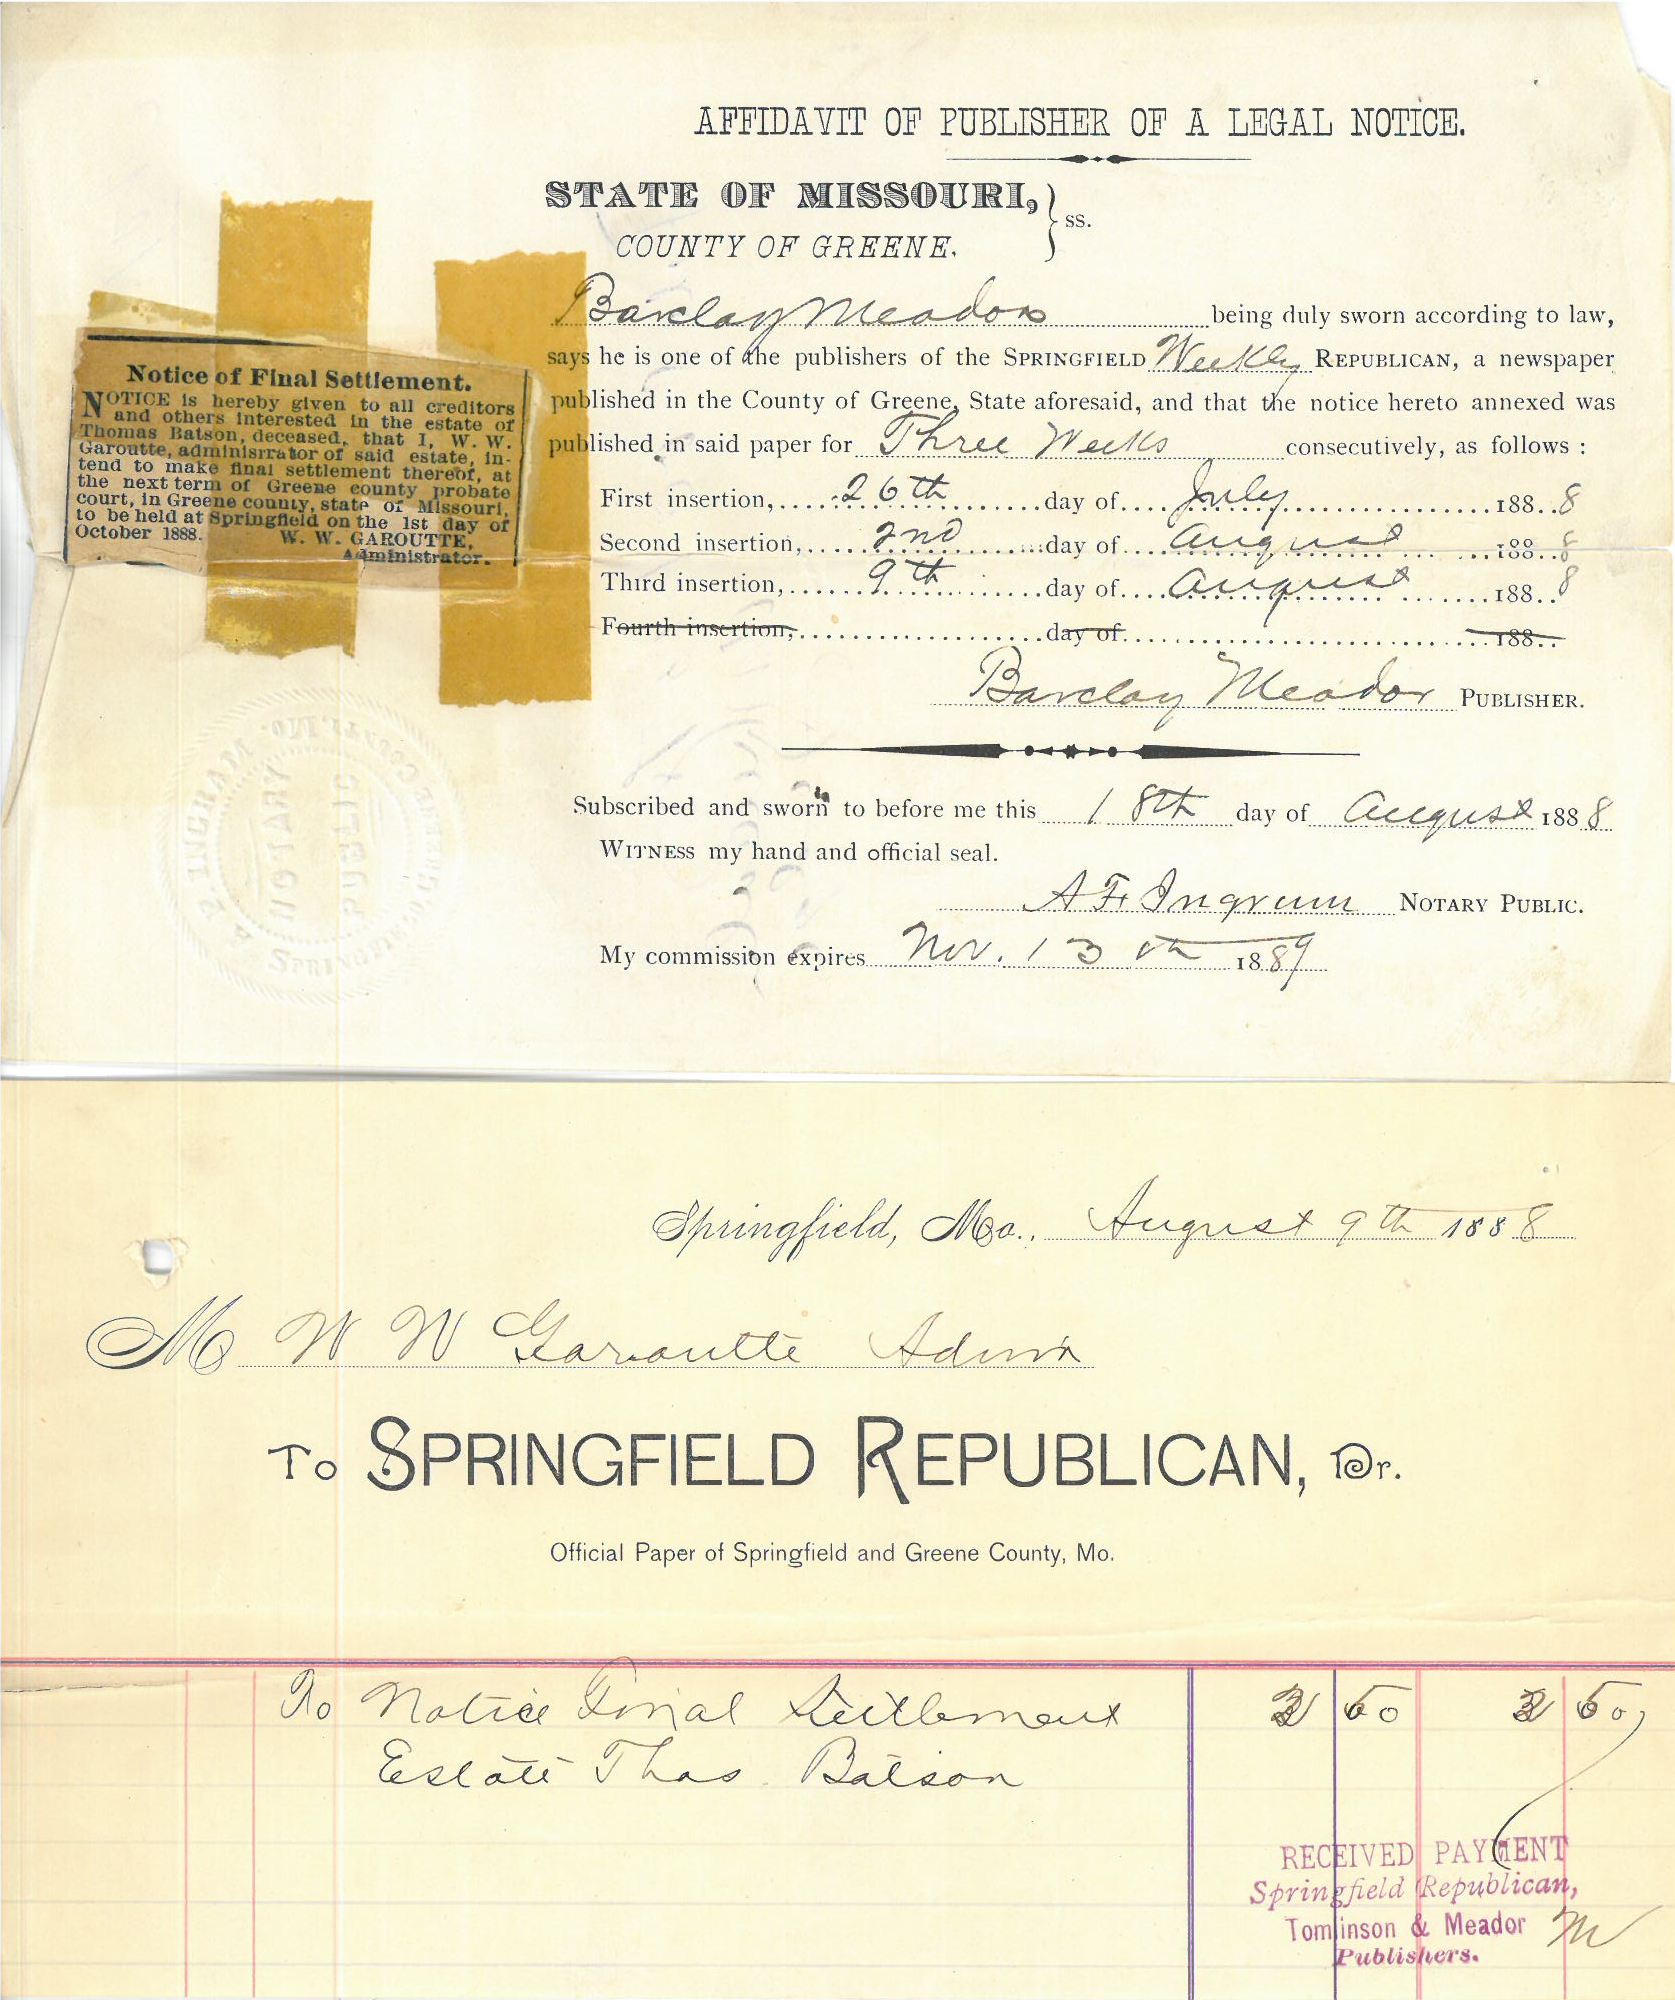 AFFIDAVIT OF PUBLISHER OF A LEGAL NOTICE.
STATE OF MISSOURI, } ss.
COUNTY OF GREENE.
Barclay Meador being duly sworn according to law,
says he is one of the publishers of the SPRINGFIELD Weekly REPUBLICAN, a newspaper
published in the County of Greene, State aforesaid, and that the notice hereto annexed was
published in said paper for Three Weeks consecutively, as follows :
First insertion, 26th day of July 1888
Second insertion, 2nd day of August 1888
Third insertion, 9th day of August 1888
Fourth insertion, day of 188
Barclay Meador PUBLISHER.
Notice of Final Settlement.
NOTICE is hereby given to all creditors
and others interested in the estate of
Thomas Batson, deceased, that I, W. W.
Garoutte, adminisrrator of said estate, in-
tend to make final settlement thereof, at
the next term of Greene county probate
court, in Greene county, state of Missouri,
to be held at Springfield on the 1st day of
October 1888. W. W. GAROUTTE,
Administrator.
Subscribed and sworn to before me this 18th day of August 1888
WITNESS my hand and official seal.
A F. Ingram NOTARY PUBLIC.
My commission expires Nov. 13th 1889
INGRAM
NOTARY
PUBLIC
SPRINGFIELD, GREENE COUNTY, MO.
Springfield, Mo., August 9th 1888
M W W Garoutte Admr
To SPRINGFIELD REPUBLICAN, Dr.
Official Paper of Springfield and Greene County, Mo.
To Notice Final Settlement 50 50
Estate Thos Batson
RECEIVED PAYMENT
Springfield Republican,
Tomlinson & Meador M
Publishers.